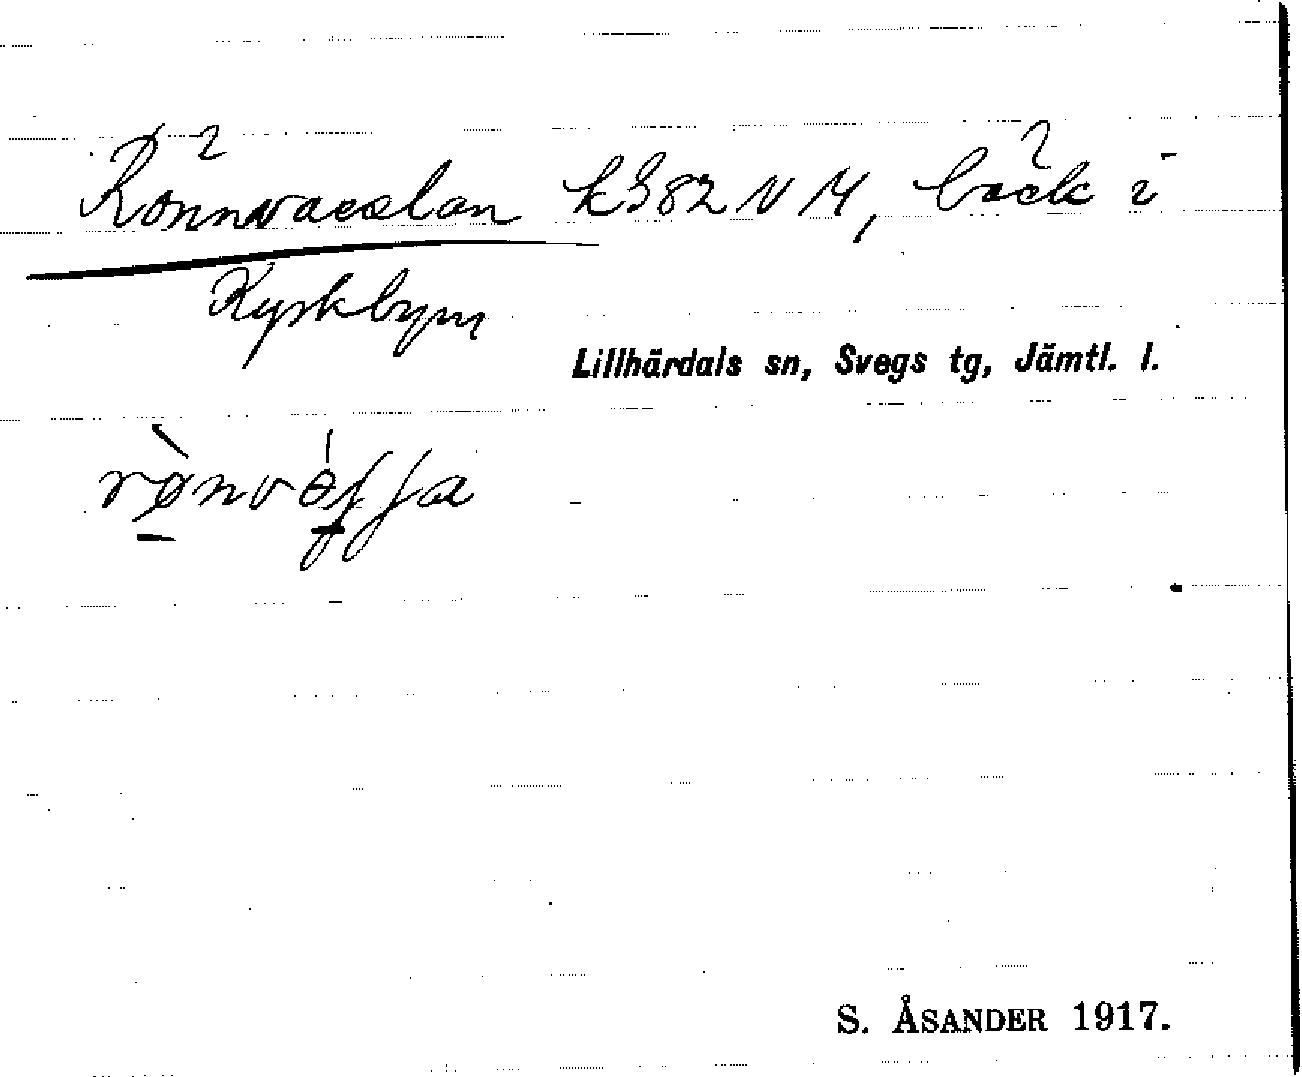 Rönnvaeslan k382 NM, bäck i
Kyrkbyn
Lillhärdals sn, Svegs tg, Jämtl. l.
S. ÅSANDER 1917.